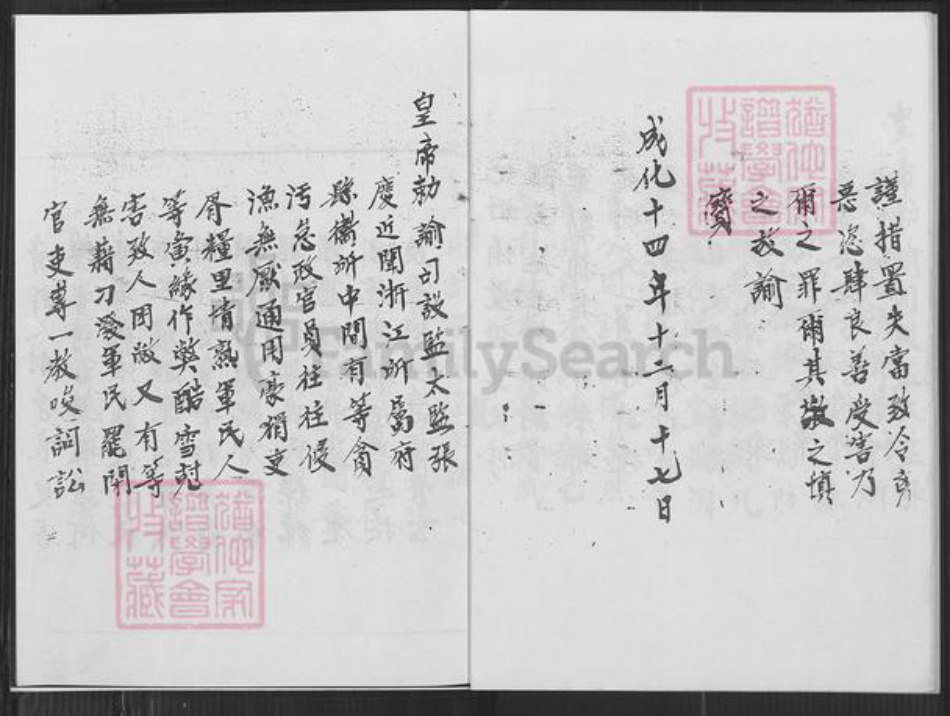 謹措置失當致令奸
惡恣肆良善受害乃
爾之罪爾其欽之慎
之故諭
寶
成化十四年十二月十七日
皇帝勅諭司設監太監張
慶近聞浙江所屬府
縣衛所中間有等貪
污怠政官員往往侵
漁無厭通同豪猾吏
胥糧里情熟軍民人
等夤緣作弊酷害
害致人困敝又有等
無藉刁潑軍民罷閑
官吏專一教唆詞訟
譜學會
收藏
FamilySearch
譜學會
收藏